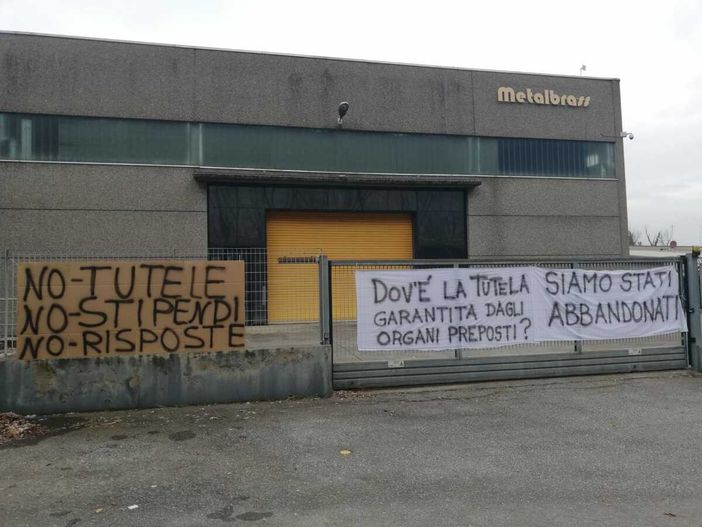 Metalbrass
NO-TUTELE
NO-STIPENDI
NO-RISPOSTE
DOV'É LA TUTELA
GARANTITA DAGLI
ORGANI PREPOSTI?
SIAMO STATI
ABBANDONATI